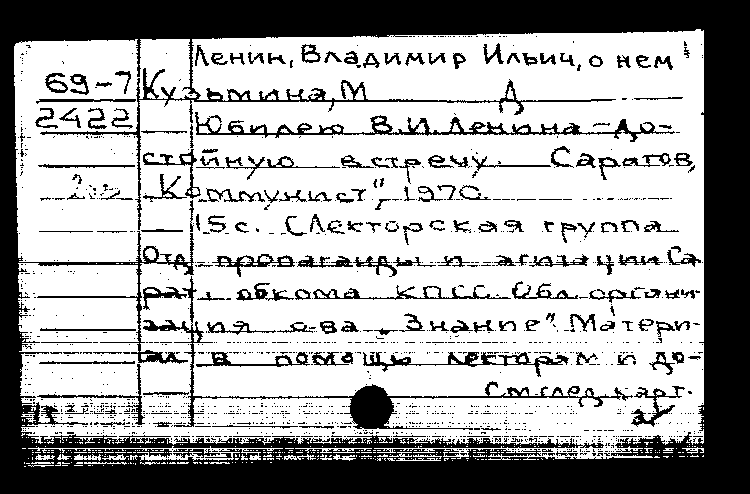 Ленин, Владимир Ильич, о нем
69-7 Кузьмина, М Д
2422 Юбилею В.И. Ленина - до-
стойную встречу. Саратов,
"Коммунист", 1970.
15 с. (Лекторская группа
Отд. пропаганды и агитации Са-
рат. обкома КПСС. Обл. органи-
зация о-ва "Знание". Матери-
ал в помощь лекторам и до-
См. след. карт.